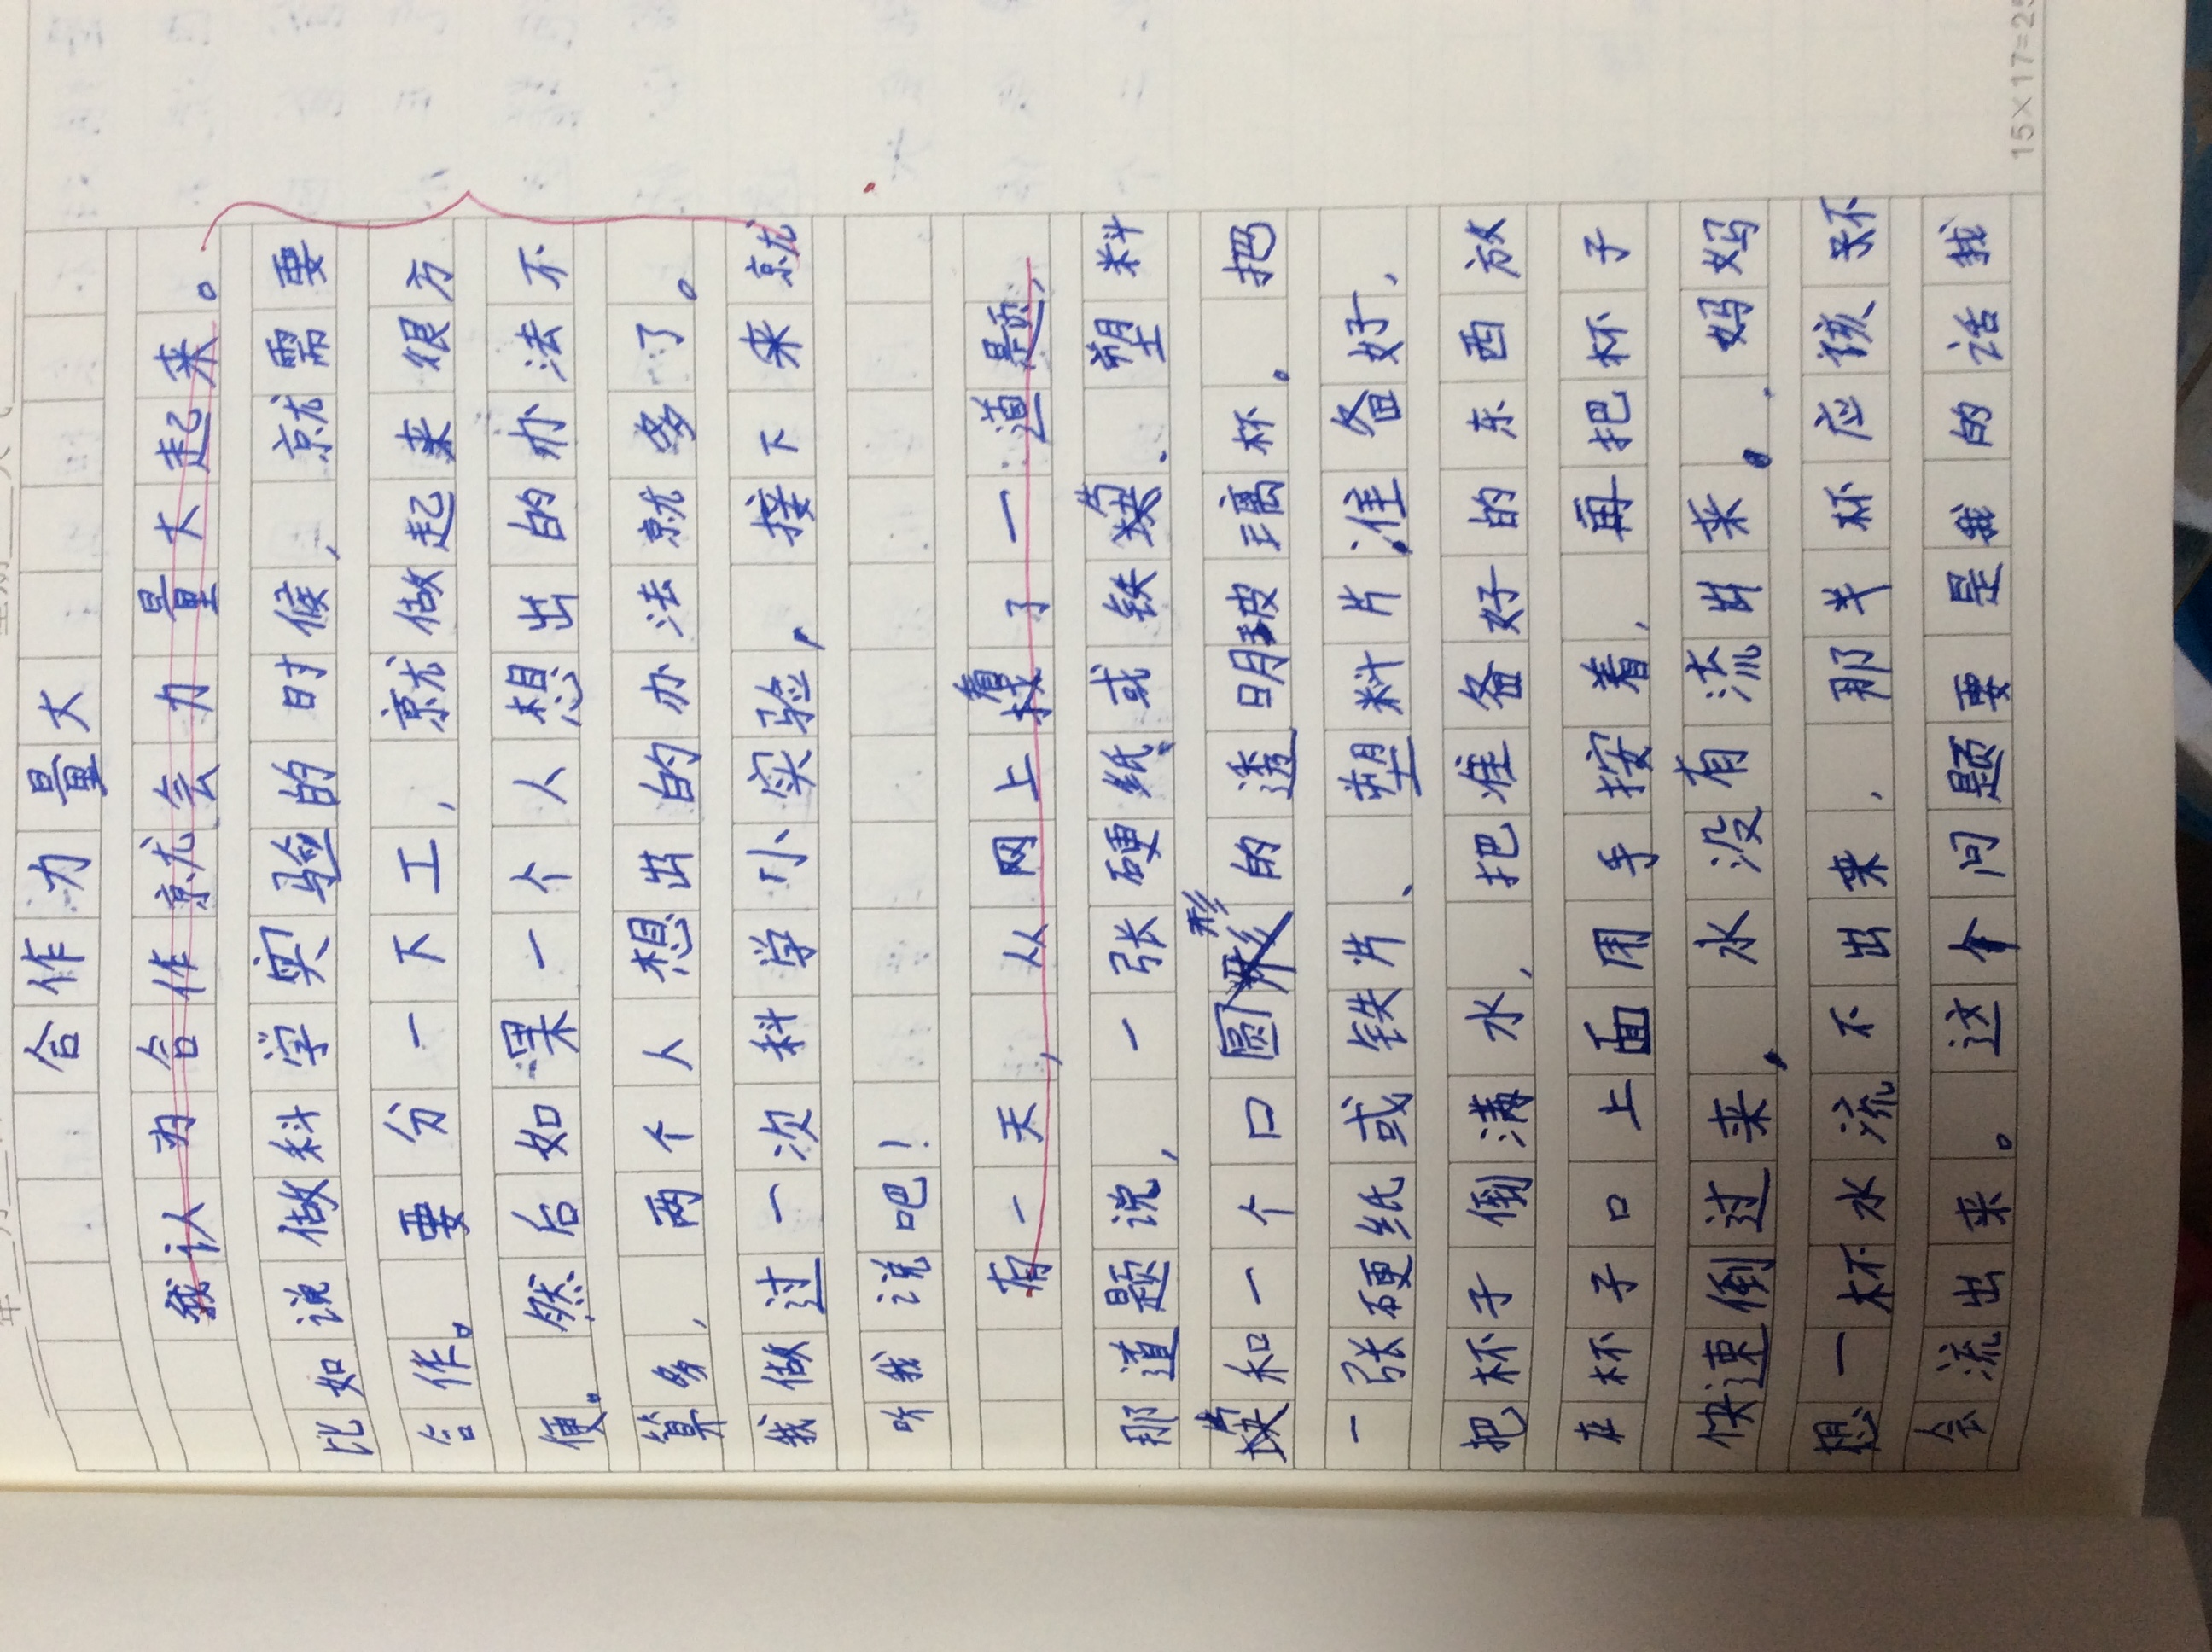 合作力量大
我认为合作就会力量大起来。
比如说做科学实验的时候，就需要
合作。要分一下工，就做起来很方
便。然后如果一个人想出的办法不
算多，两个人想出的办法就多了。
我做过一次科学小实验，接下来就
听我说吧！
有一天，从网上看了一道题，
那道题说，一张硬纸或铁块、塑料
块和一个口圆形的透明玻璃杯。把
一张硬纸或铁片、塑料片准备好，
把杯子倒满水，把准备好的东西放
在杯子口上面用手按着，再把杯子
快速倒过来，水没有流出来。妈妈
想一杯水流不出来，那半杯应该不
会流出来。这个问题要是我的话我
15×17=25